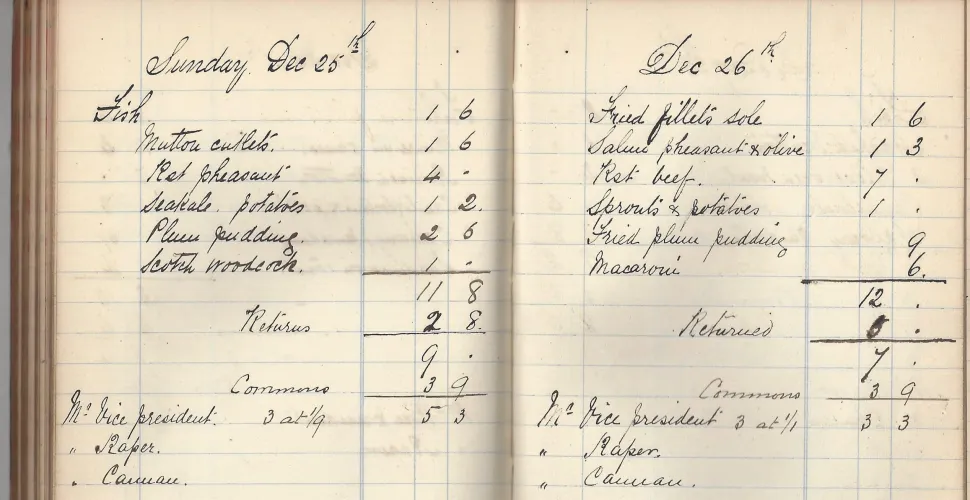 Sunday Dec 25th
Fish 1 6
Mutton cutlets. 1 6
Rst pheasant 4 "
Seakale. potatoes 1 2.
Plum pudding. 2 6
Scotch woodcock. 1 "
11 8
Returns 2 8.
9 .
Commons 3 9
Mr Vice president. 3 at 1/9 5 3
" Raper.
" Cannan.
Dec 26th
Fried fillets sole 1 6
Salmi pheasant & olive 1 3
Rst beef. 7 .
Sprouts & potatoes 1 .
Fried plum pudding 9
Macaroni 6.
12 .
Returned .
7 .
Commons 3 9
Mr Vice president 3 at 1/1 3 3
" Raper.
" Cannan.